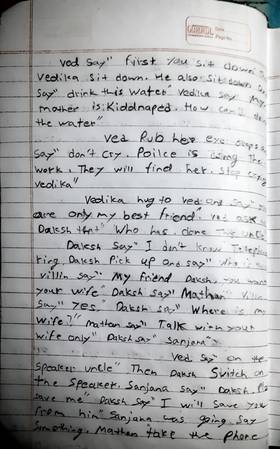 Date
Page No.
Ved say" first you sit down
Vedika sit down. He also sit down
say" drink this water" Vedika say" my
mother is kiddnaped. How can I drink
the water"
Ved Rub her eye
say" don't cry. Poilce is doing the
work. They will find her. Stop crying
Vedika"
Vedika hug to ved and say" you
are only my best friend" ved ask
Daksh that" Who has done this uncle
Daksh say" I don't know Telephone
ring. Daksh pick up and say" who is
villin say" My friend Daksh, you want
your wife" Daksh say" Mathan" Villin
say" Yes" Daksh say" Where is my
wife?" mathan say" Talk with your
wife only" Daksh say" sanjana"
Ved say" on the
speaker uncle" Then Daksh switch on
the speaker. Sanjana say" Daksh, Pls
save me" Daksh say" I will save you
from him" Sanjana was going say
something, Mathan take the phone